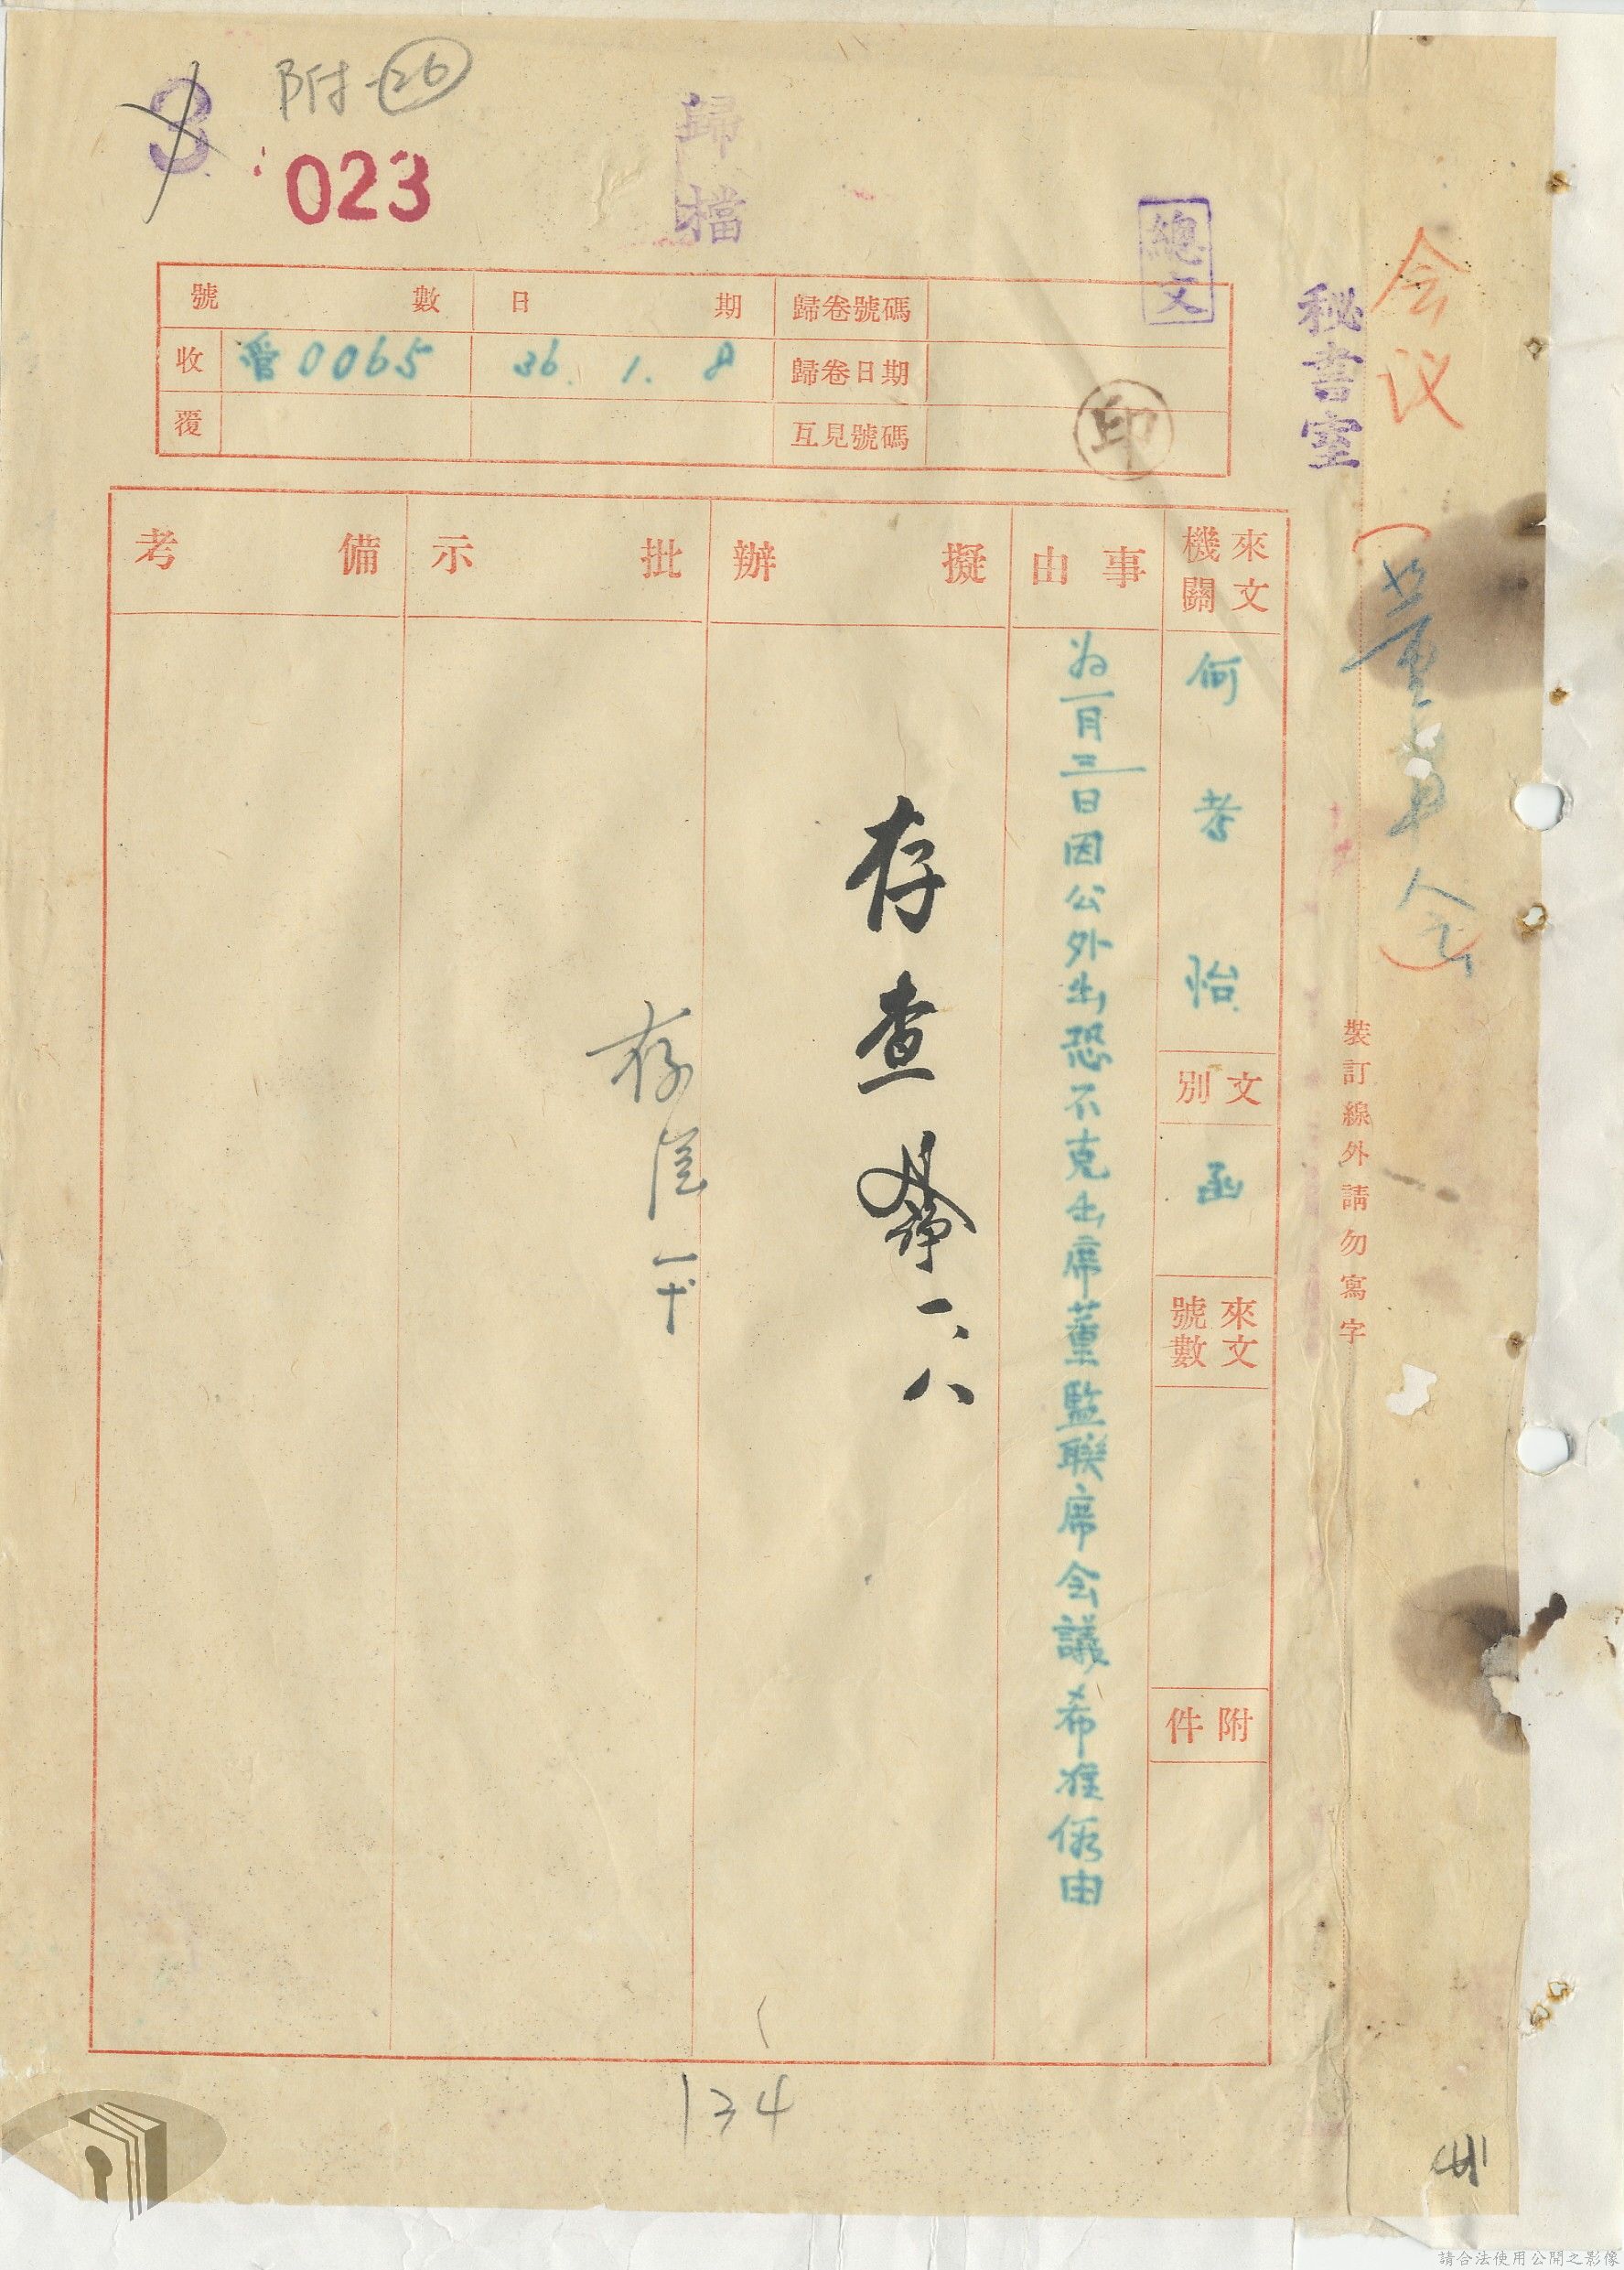 附 26
3
023
歸檔
總文
秘書室
会议
(董事会)
號數
日期
歸卷號碼
收
0065
36. 1. 8
歸卷日期
覆
互見號碼
印
來文機關
何孝怡
文別
函
來文號數
附件
事由
为一月三日因公外出恐不克出席董監联席会議希准假由
擬辦
存查
一、八
批示
存
備考
裝訂線外請勿寫字
134
請合法使用公開之影像